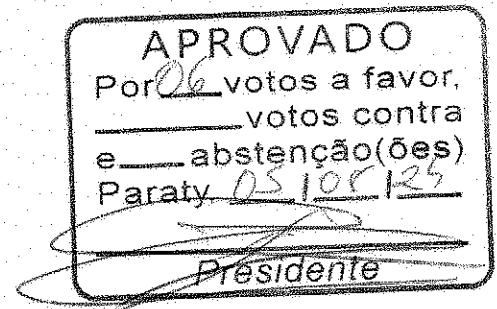 APROVADO
Por 06 votos a favor,
____ votos contra
e ____ abstenção(ões)
Paraty 05/05/25
Presidente